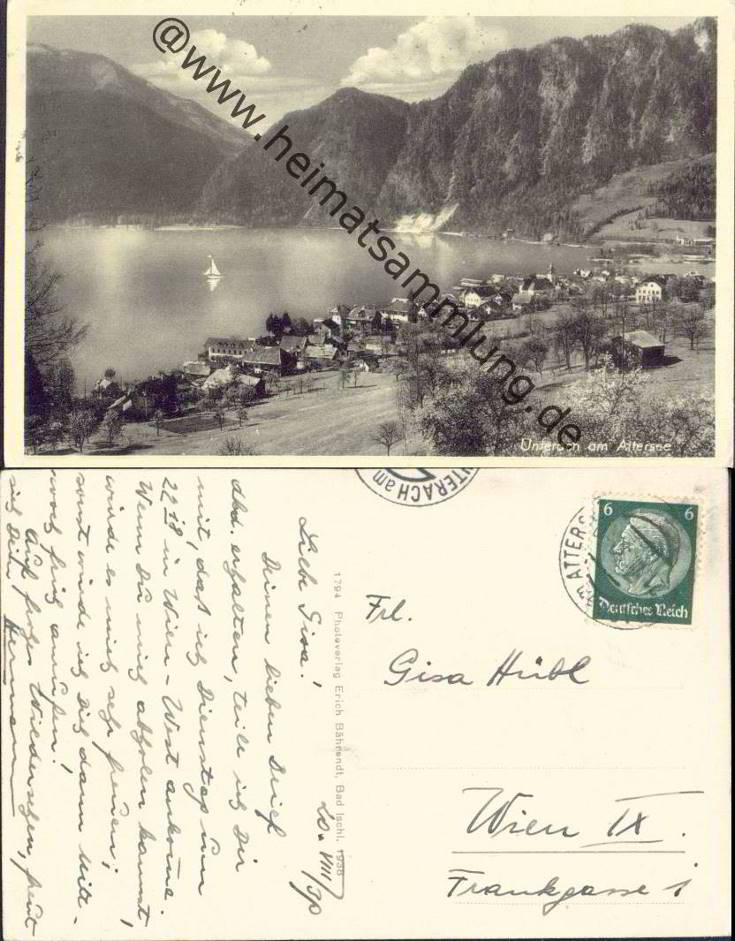 @www.heimatsammlung.de
Unterach am Attersee
UNTERACH am
am ATTERS
6 6
Deutsches Reich
Frl.
Gisa Hübl
Wien IX.
Frankgasse 1
1794 Photoverlag Erich Bährendt, Bad Ischl, 1938
20. VIII/39
Liebe Gisa!
Deinen lieben Brief
dkd. erhalten, teile ich Dir
mit, daß ich Dienstag um
22 in Wien-West ankomme.
Wenn Du mich abholen kannst,
würde es mich sehr freuen;
sonst würde ich Dich dann Mitt-
woch früh anrufen!
Auf frohes Wiedersehen, freut
sich Dein Hermann